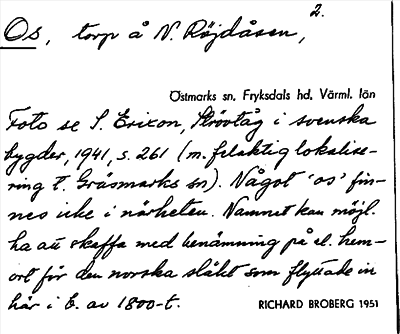 2.
Os, torp å N. Röjdåsen,
Östmarks sn. Fryksdals hd. Värml. län
Foto se S. Erixon, Ströftåg i svenska
bygder, 1941, s. 261 (m. felaktig lokalise-
ring t. Gräsmarks sn). Något 'os' fin-
nes icke i närheten. Namnet kan möjl.
ha att skaffa med benämning på el. hem-
ort för den norska släkt som flyttade in
här i b. av 1800-t.
RICHARD BROBERG 1951